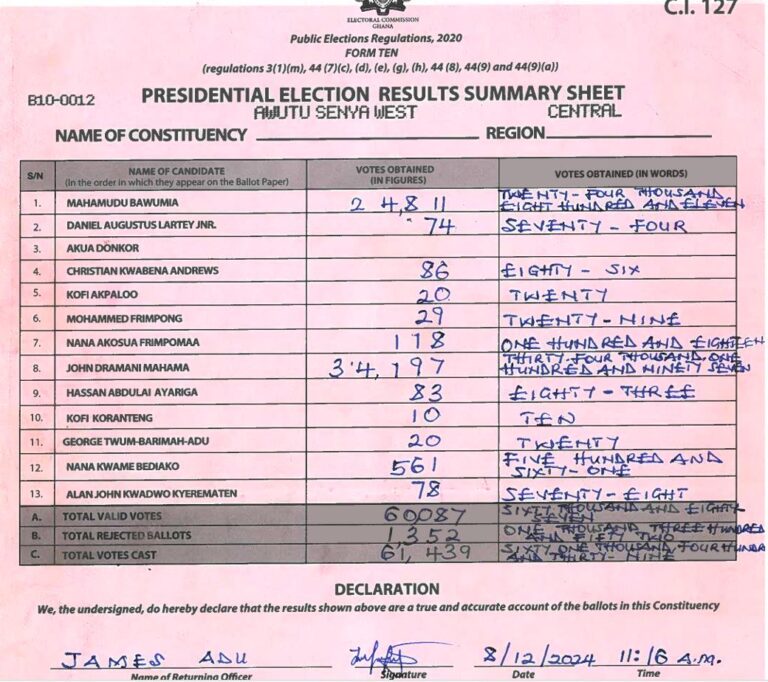 C.I. 127
ELECTORAL COMMISSION
GHANA
Public Elections Regulations, 2020
FORM TEN
(regulations 3(1)(m), 44 (7)(c), (d), (e), (g), (h), 44 (8), 44(9) and 44(9)(a))
B10-0012 PRESIDENTIAL ELECTION RESULTS SUMMARY SHEET
AWUTU SENYA WEST CENTRAL
NAME OF CONSTITUENCY REGION
S/N NAME OF CANDIDATE (In the order in which they appear on the Ballot Paper) VOTES OBTAINED (IN FIGURES) VOTES OBTAINED (IN WORDS)
1. MAHAMUDU BAWUMIA 24,811 TWENTY-FOUR THOUSAND EIGHT HUNDRED AND ELEVEN
2. DANIEL AUGUSTUS LARTEY JNR. 74 SEVENTY-FOUR
3. AKUA DONKOR
4. CHRISTIAN KWABENA ANDREWS 86 EIGHTY-SIX
5. KOFI AKPALOO 20 TWENTY
6. MOHAMMED FRIMPONG 29 TWENTY-NINE
7. NANA AKOSUA FRIMPOMAA 118 ONE HUNDRED AND EIGHTEEN
8. JOHN DRAMANI MAHAMA 34,197 THIRTY-FOUR THOUSAND, ONE HUNDRED AND NINETY SEVEN
9. HASSAN ABDULAI AYARIGA 83 EIGHTY-THREE
10. KOFI KORANTENG 10 TEN
11. GEORGE TWUM-BARIMAH-ADU 20 TWENTY
12. NANA KWAME BEDIAKO 561 FIVE HUNDRED AND SIXTY-ONE
13. ALAN JOHN KWADWO KYEREMATEN 78 SEVENTY-EIGHT
A. TOTAL VALID VOTES 60087 SIXTY THOUSAND AND EIGHTY SEVEN
B. TOTAL REJECTED BALLOTS 1,352 ONE THOUSAND THREE HUNDRED AND FIFTY TWO
C. TOTAL VOTES CAST 61,439 SIXTY ONE THOUSAND, FOUR HUNDRED AND THIRTY-NINE
DECLARATION
We, the undersigned, do hereby declare that the results shown above are a true and accurate account of the ballots in this Constituency
JAMES ADU 8/12/2024 11:16 A.M.
Name of Returning Officer Signature Date Time